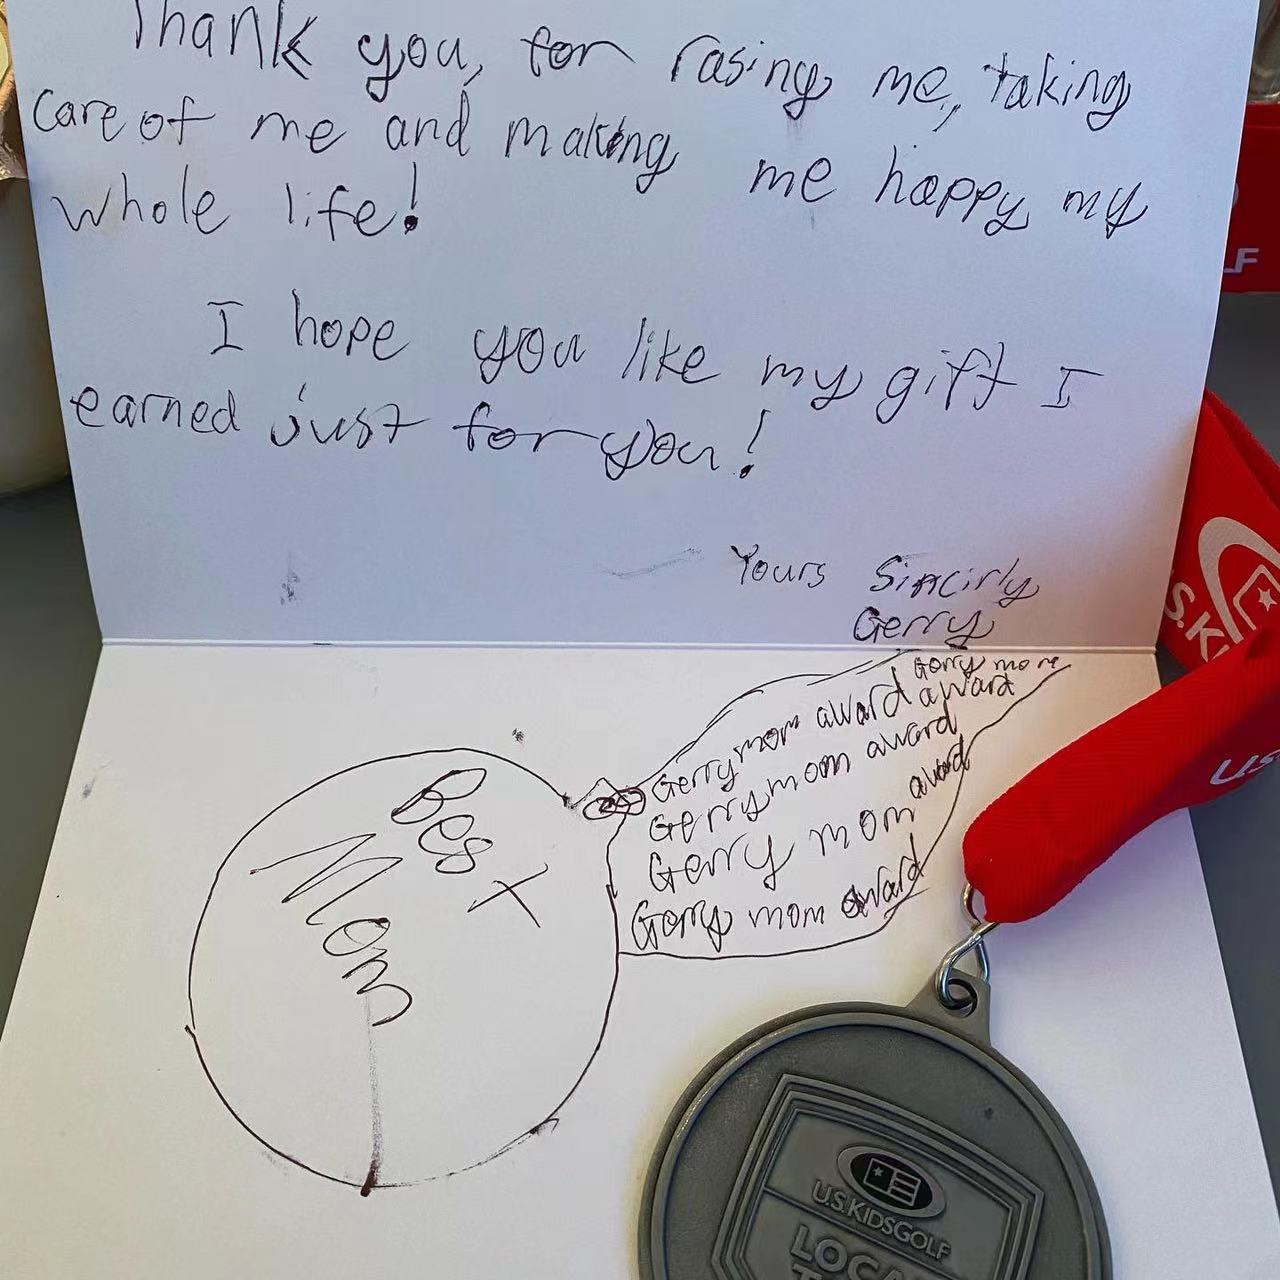 Thank you, for rasing me, taking
care of me and making me happy my
whole life!
I hope you like my gift I
earned just for you!
Yours Sincirly
Gerry
Gerry more
Gerry mom award award
Gerry mom award
Gerry mom award
Gerry mom award
Best
Mom
U.S.KIDSGOLF
LOCA
S.KI
US
LF